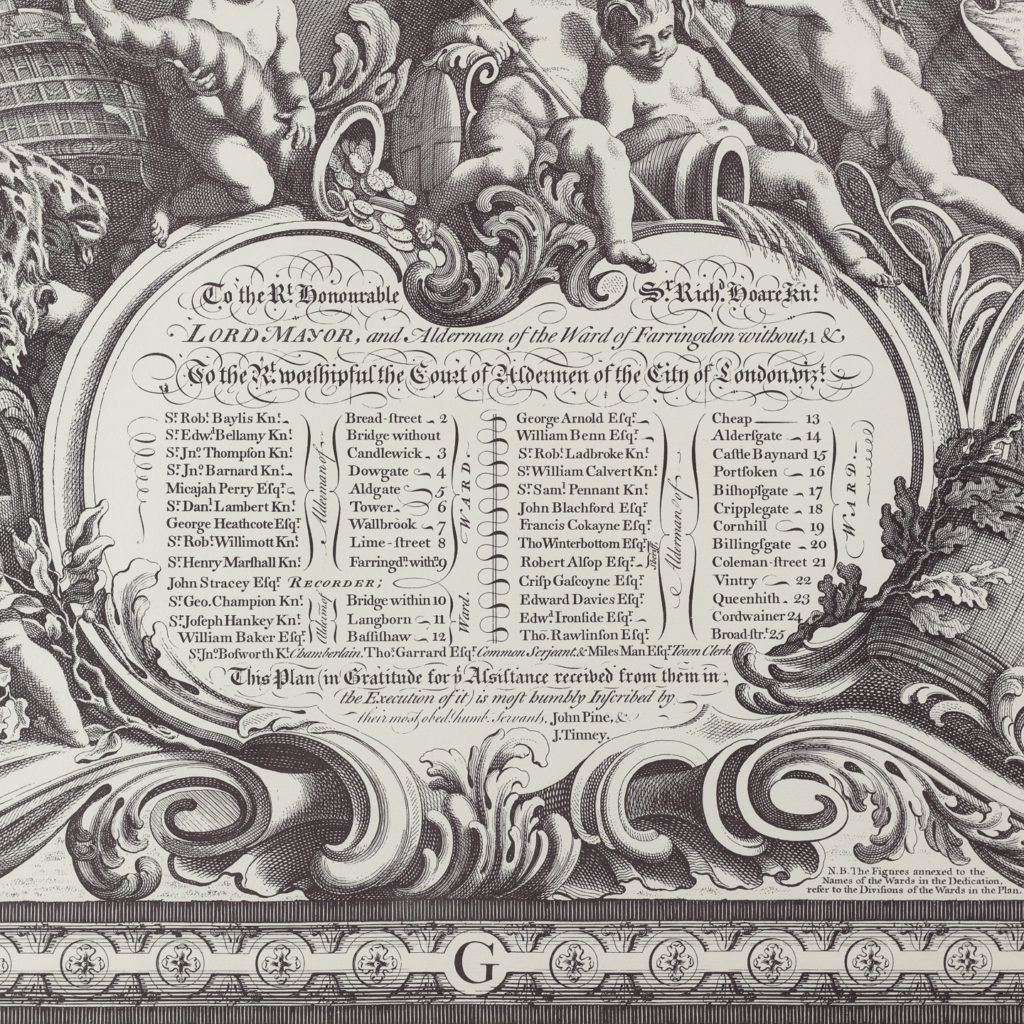 To the Rt. Honourable Sr. Richd. Hoare Knt.
LORD MAYOR, and Alderman of the Ward of Farringdon without, 1 &
To the Rt. worſhipful the Court of Aldermen of the City of London, vizt.
Sr. Robt. Baylis Knt. Bread-ſtreet 2
Sr. Edwd. Bellamy Knt. Bridge without
Sr. Jno. Thompſon Knt. Candlewick 3
Sr. Jno. Barnard Knt. Dowgate 4
Micajah Perry Eſqr. Aldgate 5
Sr. Danl. Lambert Knt. Tower 6
George Heathcote Eſqr. Wallbrook 7
Sr. Robt. Willimott Knt. Lime-ſtreet 8
Sr. Henry Marſhall Knt. Farringdn. withn. 9
Alderman of
WARD
John Stracey Eſqr. RECORDER;
Sr. Geo. Champion Knt. Bridge within 10
Sr. Joſeph Hankey Knt. Langborn 11
William Baker Eſqr. Baſſiſhaw 12
Alderman of
Ward.
George Arnold Eſqr. Cheap 13
William Benn Eſqr. Alderſgate 14
Sr. Robt. Ladbroke Knt. Caſtle Baynard 15
Sr. William Calvert Knt. Portſoken 16
Sr. Saml. Pennant Knt. Biſhopſgate 17
John Blachford Eſqr. Cripplegate 18
Francis Cokayne Eſqr. Cornhill 19
Tho Winterbottom Eſqr. Billingſgate 20
Robert Alſop Eſqr. Coleman-ſtreet 21
Criſp Gaſcoyne Eſqr. Vintry 22
Edward Davies Eſqr. Queenhith 23
Edwd. Ironſide Eſqr. Cordwainer 24
Tho. Rawlinſon Eſqr. Broad-ſtrt. 25
Alderman of
WARD
Sr. Jno. Boſworth Kt. Chamberlain. Thos. Garrard Eſqr. Common Serjeant, & Miles Man Eſqr. Town Clerk
This Plan (in Gratitude for ye Aſsiſtance received from them in
the Execution of it) is moſt humbly Inſcribed by
their moſt obedt. humb. Servants, John Pine, &
J. Tinney.
N.B. The Figures annexed to the
Names of the Wards in the Dedication,
refer to the Diviſions of the Wards in the Plan.
G